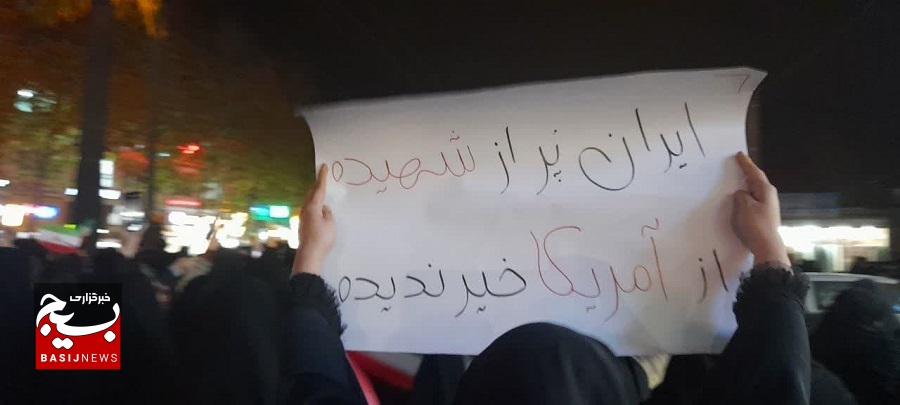 ایران پر از شهیده
از آمریکا خیر ندیده
خبرگزاری
بسیج
BASIJNEWS